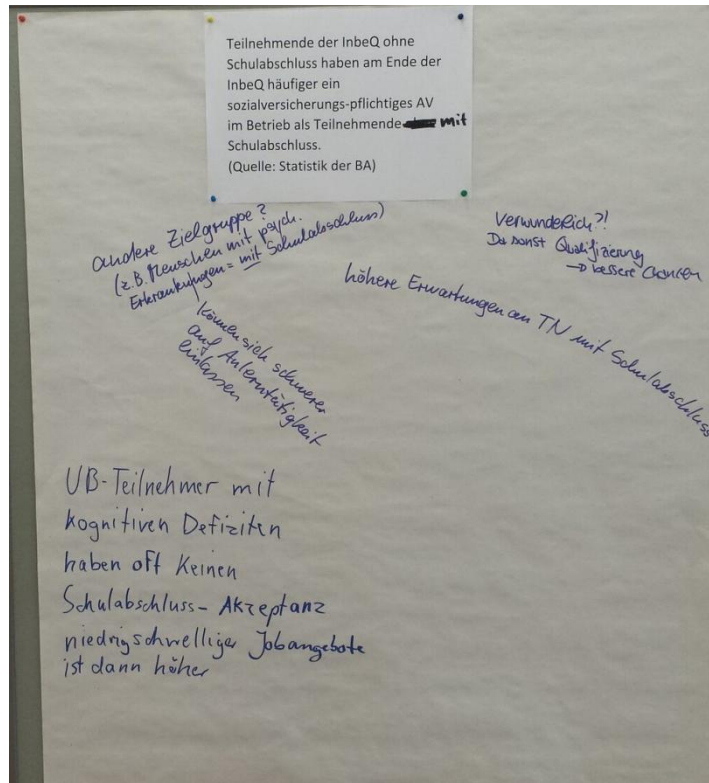 Teilnehmende der InbeQ ohne
Schulabschluss haben am Ende der
InbeQ häufiger ein
sozialversicherungs-pflichtiges AV
im Betrieb als Teilnehmende mit
Schulabschluss.
(Quelle: Statistik der BA)
andere Zielgruppe?
(z.B. Menschen mit psych.
Erkrankungen = mit Schulabschluss)
können sich schwerer
auf Anlerntätigkeit
einlassen
Verwunderlich?!
Da sonst Qualifizierung
→ bessere Chancen
höhere Erwartungen an TN mit Schulabschluss
UB-Teilnehmer mit
kognitiven Defiziten
haben oft Keinen
Schulabschluss - Akzeptanz
niedrigschwelliger Jobangebote
ist dann höher